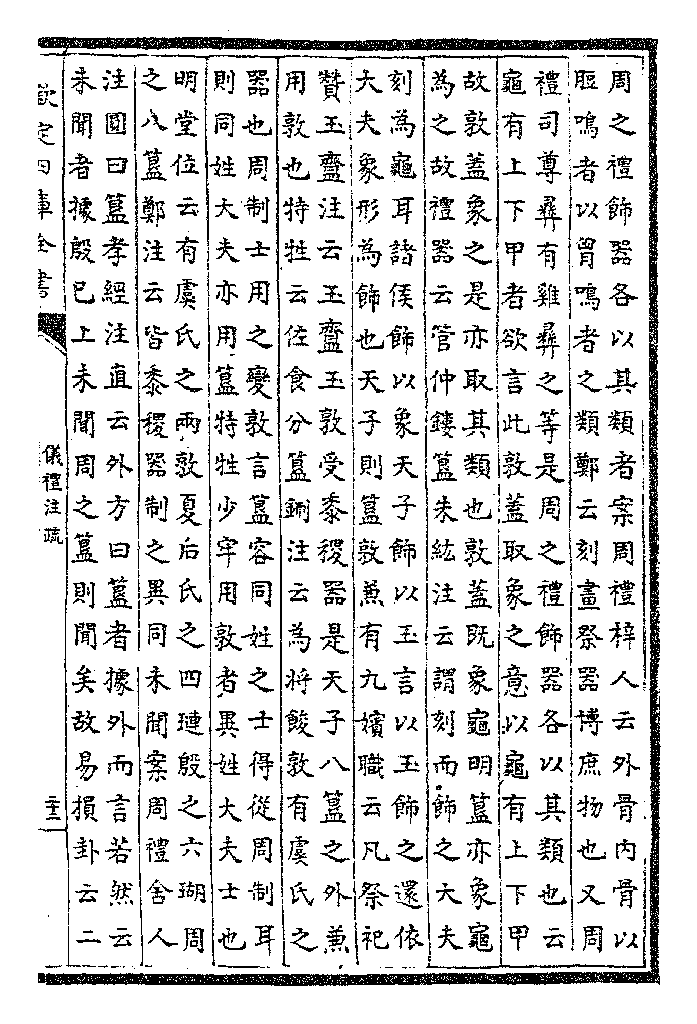 周之禮飾器各以其類者案周禮梓人云外骨内骨以
脰鳴者以胷鳴者之類鄭云刻畫祭器博庶物也又周
禮司尊彛有雞彛之等是周之禮飾器各以其類也云
龜有上下甲者欲言此敦蓋取象之意以龜有上下甲
故敦蓋象之是亦取其類也敦蓋既象龜明簋亦象龜
為之故禮器云管仲鏤簋朱紘注云謂刻而飾之大夫
刻為龜耳諸侯飾以象天子飾以玉言以玉飾之還依
大夫象形為飾也天子則簋敦兼有九嬪職云凡祭祀
贊玉齍注云玉齍玉敦受黍稷器是天子八簋之外兼
用敦也特牲云佐食分簋鉶注云為將餕敦有虞氏之
器也周制士用之變敦言簋容同姓之士得從周制耳
則同姓大夫亦用簋特牲少牢用敦者異姓大夫士也
明堂位云有虞氏之兩敦夏后氏之四璉殷之六瑚周
之八簋鄭注云皆黍稷器制之異同未聞案周禮舍人
注圓曰簋孝經注直云外方曰簋者據外而言若然云
未聞者據殷已上未聞周之簋則聞矣故易損卦云二
欽定四庫全書
儀禮注疏
二十三